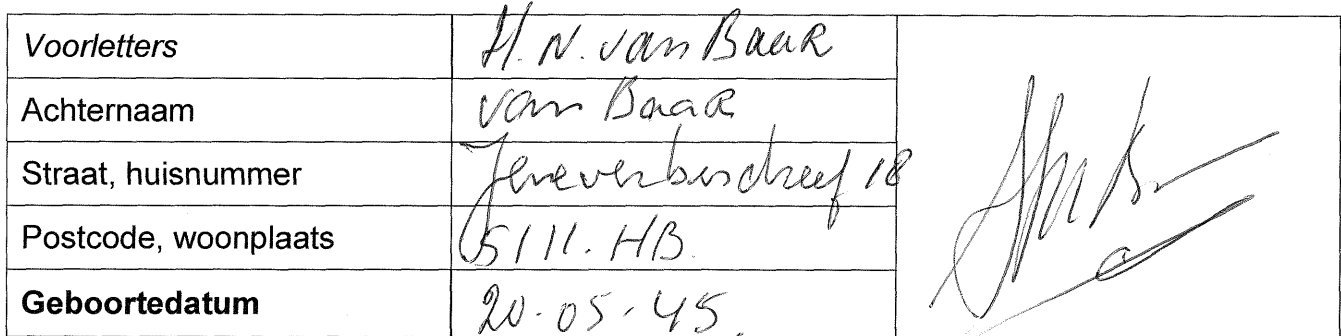 Voorletters H. N. van Baar
Achternaam van Baar
Straat, huisnummer Jeneverbesdreef 18
Postcode, woonplaats 5111. HB.
Geboortedatum 20-05-45.